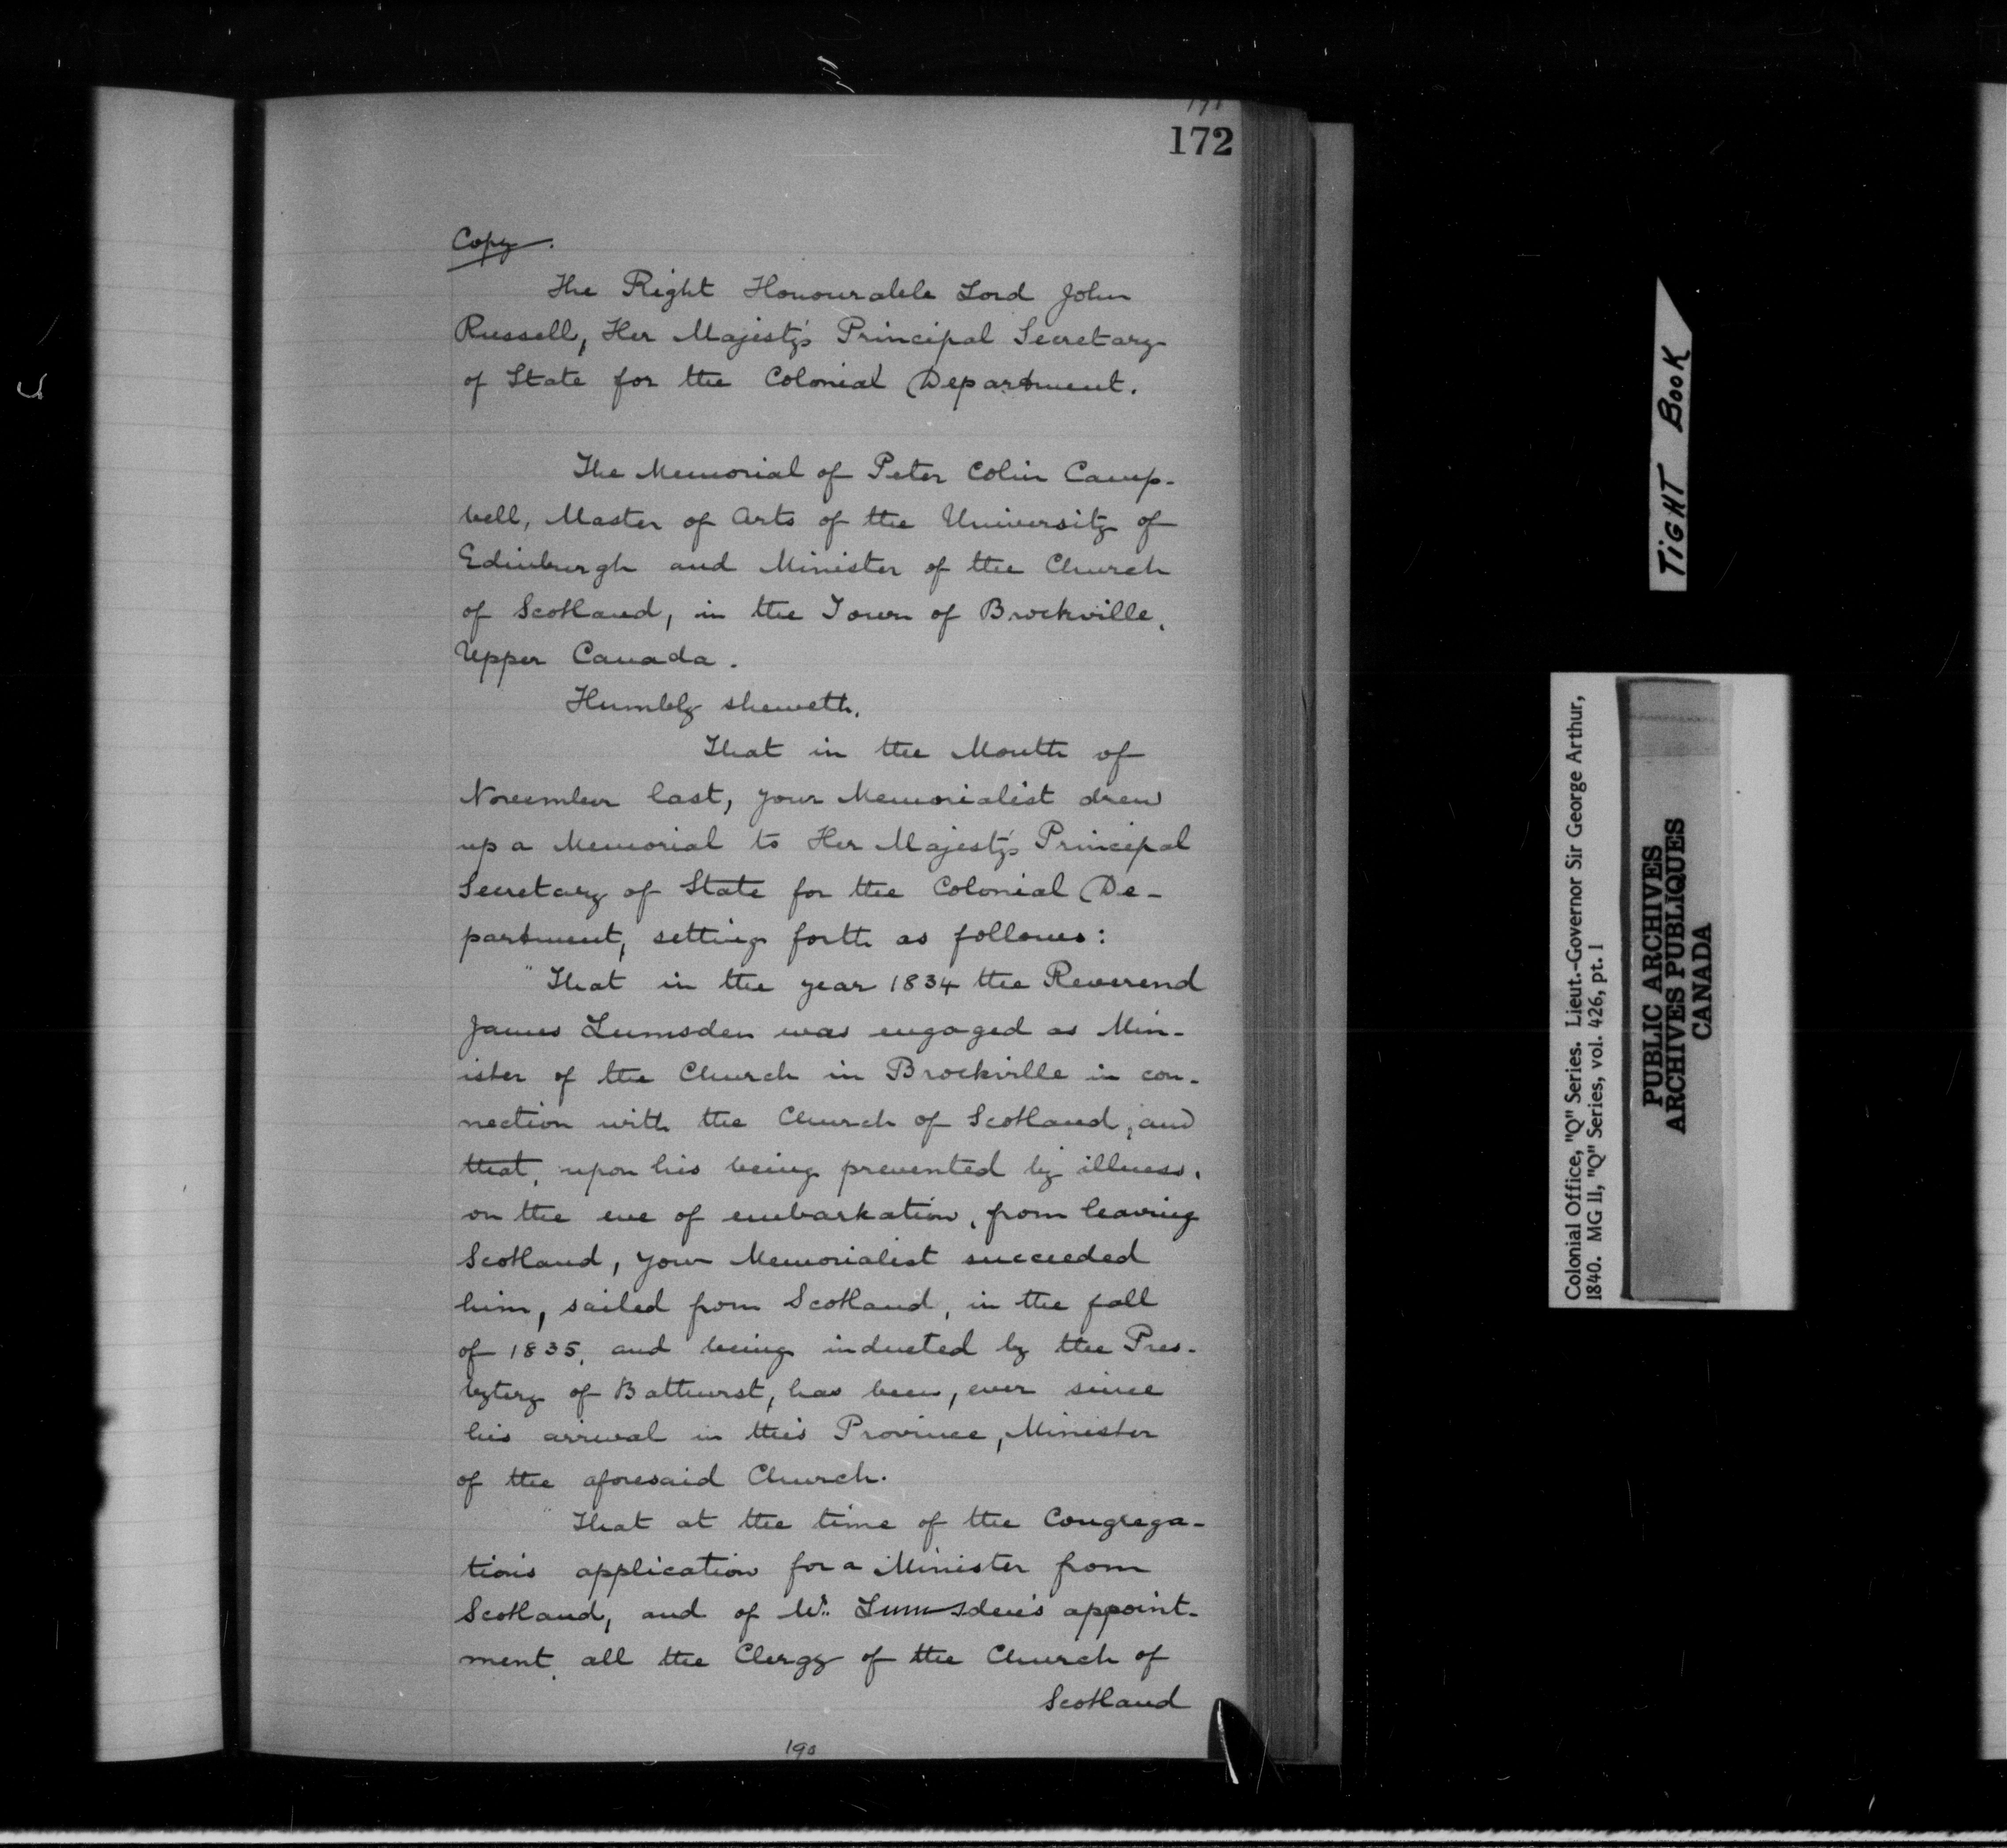 172
Copy.
The Right Honourable Lord John
Russell, Her Majesty's Principal Secretary
of State for the Colonial Department.
The Memorial of Peter Colin Camp-
bell, Master of Arts of the University of
Edinburgh and Minister of the Church
of Scotland, in the Town of Brockville,
Upper Canada.
Humbly sheweth,
That in the Month of
November last, your Memorialist drew
up a Memorial to Her Majesty's Principal
Secretary of State for the Colonial De-
partment, setting forth as follows:
"That in the year 1834 the Reverend
James Lumsden was engaged as Min-
ister of the Church in Brockville in con-
nection with the Church of Scotland, and
that, upon his being prevented by illness,
on the eve of embarkation, from leaving
Scotland, your Memorialist succeeded
him, sailed from Scotland, in the fall
of 1835, and being inducted by the Pres-
bytery of Bathurst, has been, ever since
his arrival in this Province, Minister
of the aforesaid Church.
"That at the time of the Congrega-
tion's application for a Minister from
Scotland, and of Mr. Lumsden's appoint-
ment, all the Clergy of the Church of
Scotland
190
TIGHT BOOK
Colonial Office, "Q" Series. Lieut.-Governor Sir George Arthur,
1840. MG 11, "Q" Series, vol. 426, pt. 1
PUBLIC ARCHIVES
ARCHIVES PUBLIQUES
CANADA